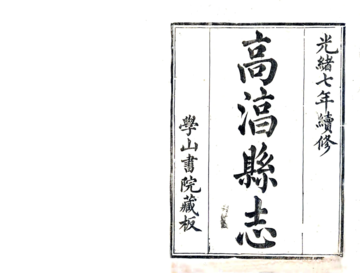 光緒七年續修
高淳縣志
學山書院藏板